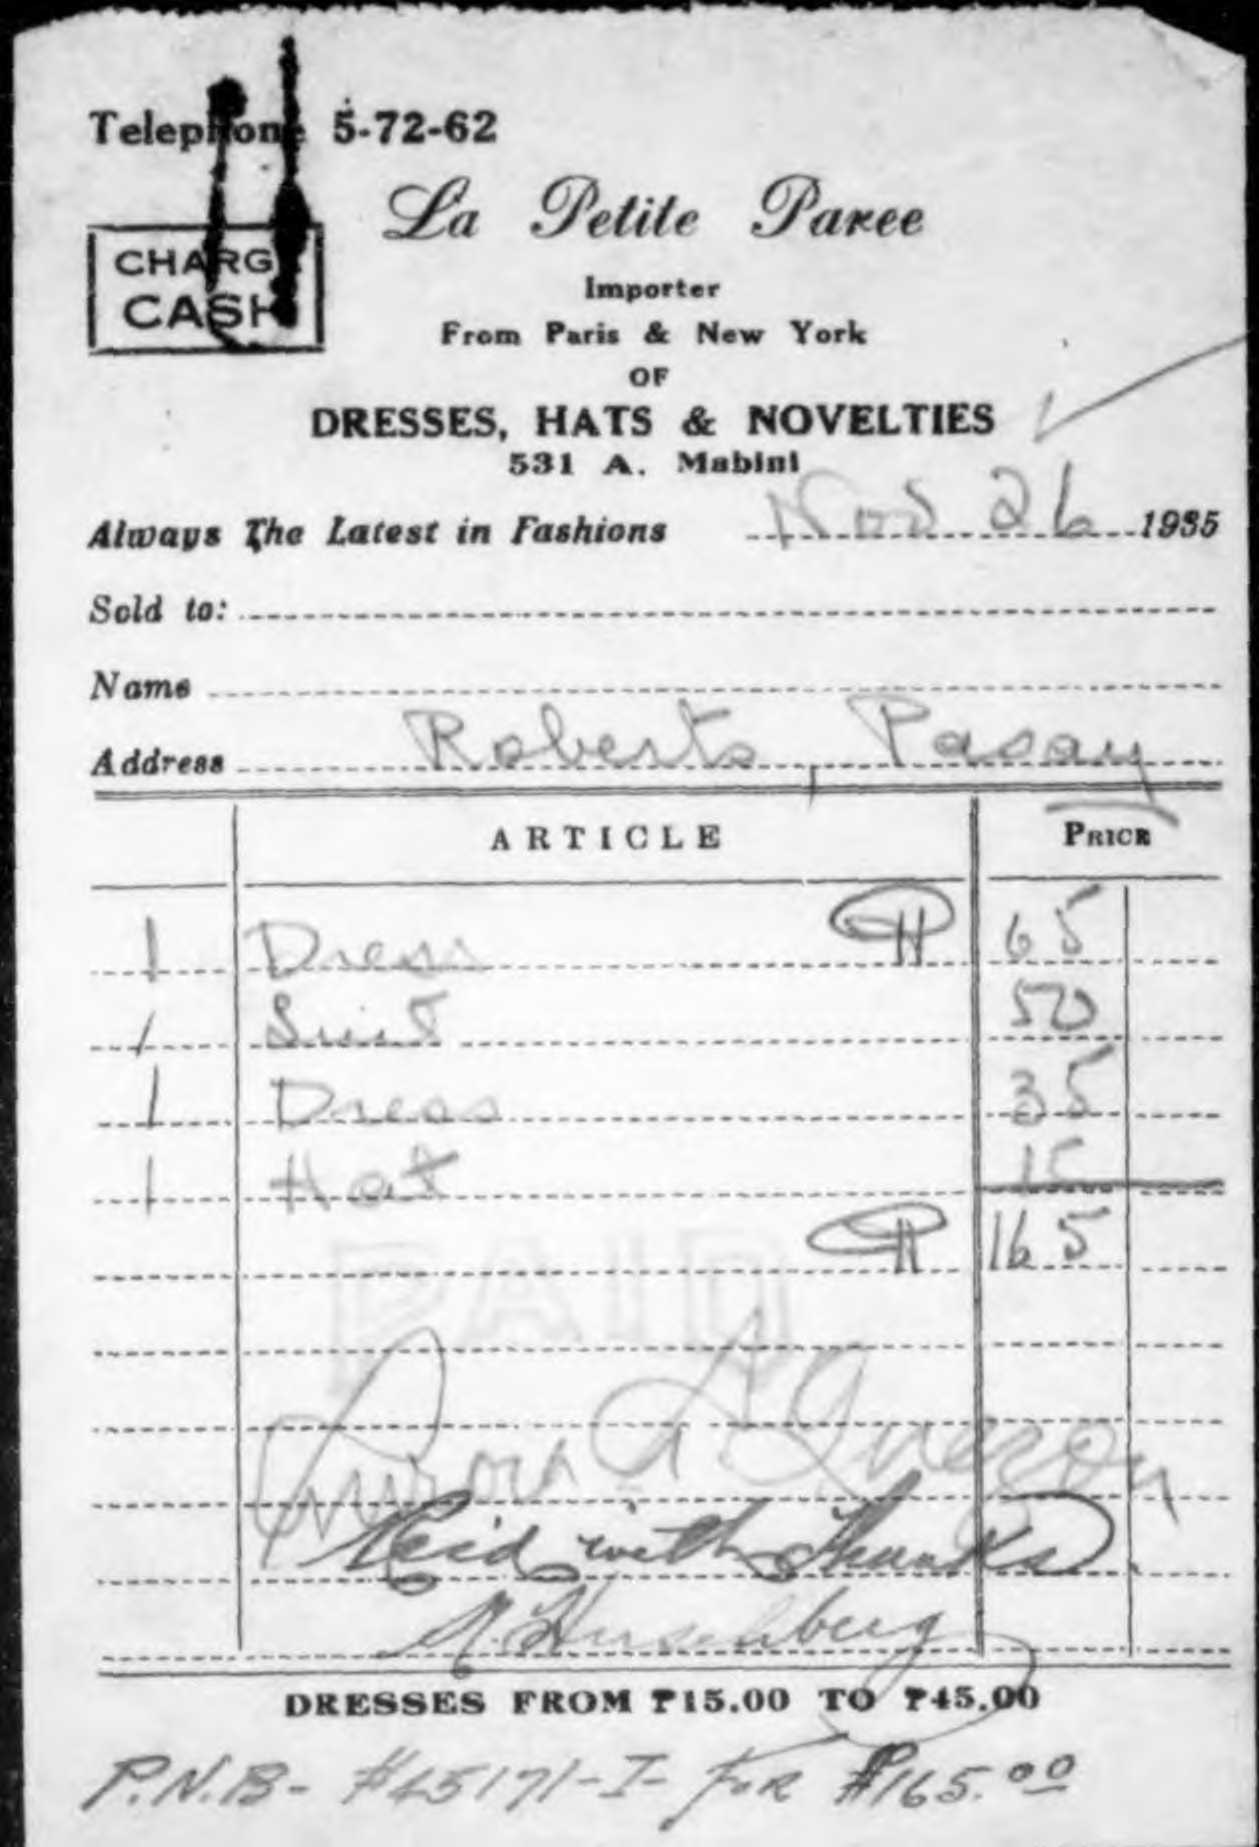 Telephone 5-72-62
La Petite Paree
CHARGE
CASH
Importer
From Paris & New York
OF
DRESSES, HATS & NOVELTIES
531 A. Mabini
Always The Latest in Fashions Nov 26 1935
Sold to:
Name
Address Roberts, Pasay
ARTICLE PRICE
1 Dress ₱ 65
1 Suit 50
1 Dress 35
1 Hat 15
₱ 165
PAID
Aurora A Quezon
Paid with thanks
M. Hirschberg
DRESSES FROM ₱15.00 TO ₱45.00
P.N.B- #45171-I- FOR ₱165.00